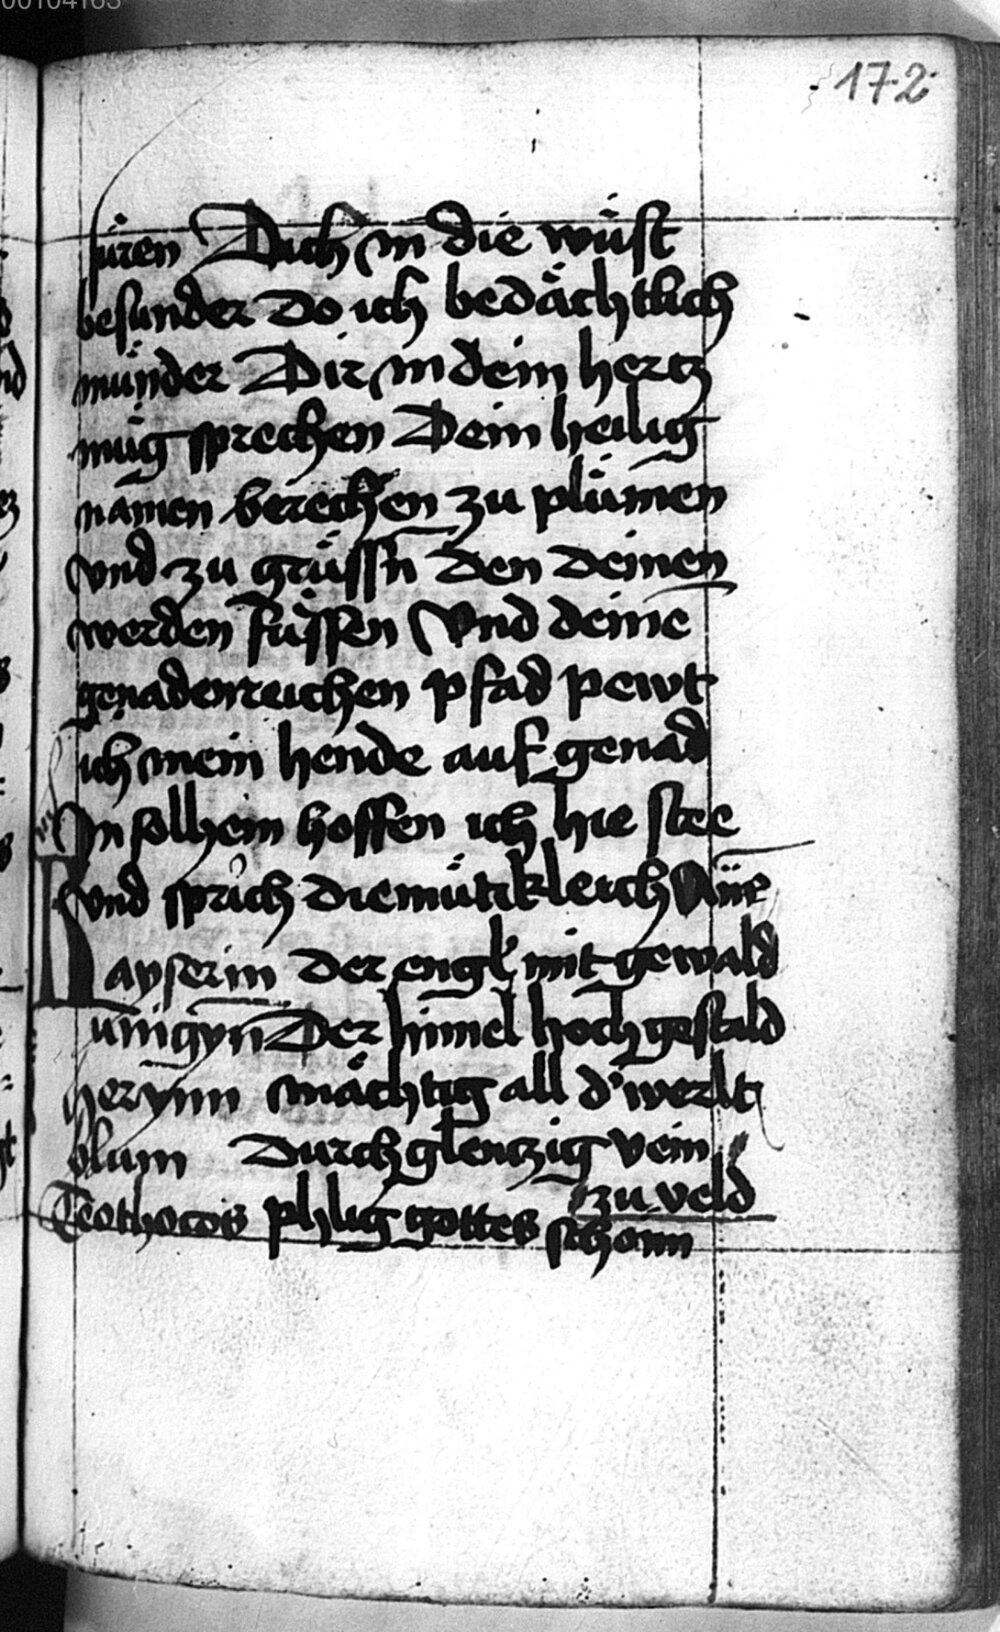 00104163
172
füren Dich in die wüst
besunder Do ich bedächtlich
münder Dir in dein hertz
müg sprechen Dein heilig
namen berechen zu plümen
vnd zu grüssn den deinen
werden füssen Vnd deine
genadenreichen pfad pewt
ich mein hende auf genad
In solhem hoffen ich hie stee
vnd sprich diemütikleich Aue
Kayserin der engl mit gewald
unigyn Der himel hoch gestald
herynn mächtig all d' werlt
blum Durchglentzig vein
zu veld
Teothocos phlig gottes schonn